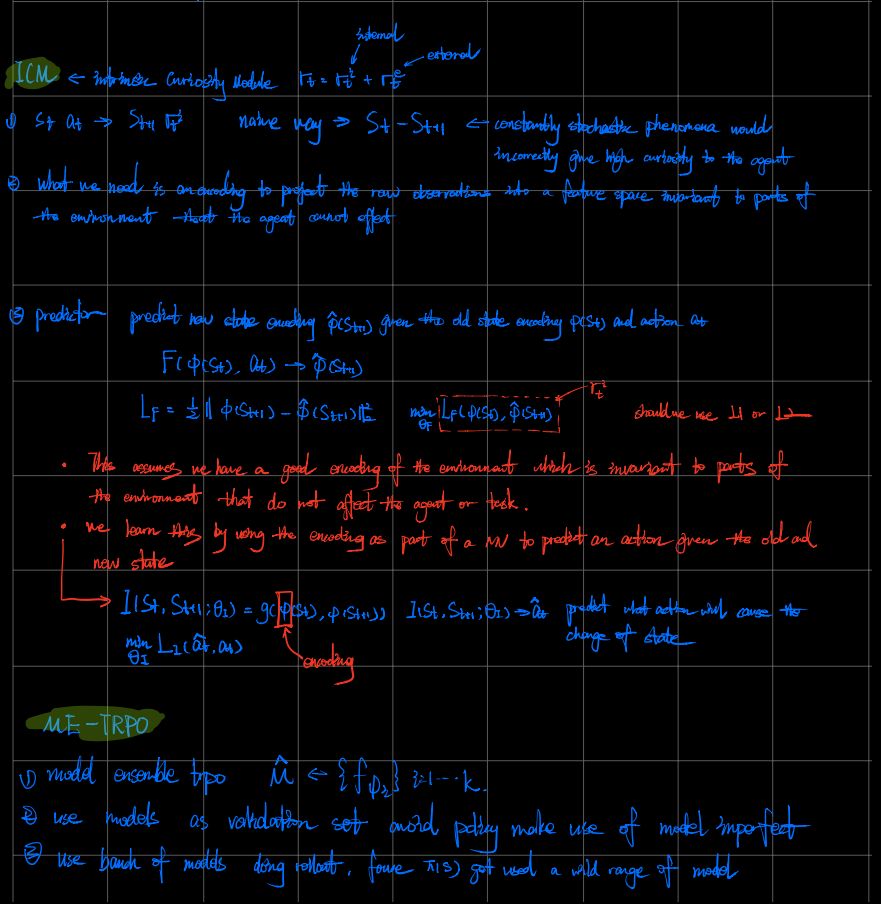 internal
external
ICM ← intrinsic Curiosity Module r_t = r_t^i + r_t^e
① S_t a_t → S_{t+1} r_t^i naive way → S_t - S_{t+1} ← constantly stochastic phenomena would
incorrectly give high curiosity to the agent
② what we need is an encoding to project the raw observations into a feature space invariant to parts of
the environment that the agent cannot effect
③ predictor predict new state encoding φ̂(S_{t+1}) given the old state encoding φ(S_t) and action a_t
F(φ(S_t), a_t) → φ̂(S_{t+1})
r_t^i
L_F = ½ || φ(S_{t+1}) - φ̂(S_{t+1}) ||_2^2 min_{θ_F} L_F(φ(S_t), φ̂(S_{t+1})) should we use L1 or L2
• This assumes we have a good encoding of the environment which is invariant to parts of
the environment that do not affect the agent or task.
• we learn this by using the encoding as part of a NN to predict an action given the old and
new state
I(S_t, S_{t+1}; θ_I) = g(φ(S_t), φ(S_{t+1})) I(S_t, S_{t+1}; θ_I) → â_t predict what action will cause the
change of state
min_{θ_I} L_I(â_t, a_t)
encoding
ME-TRPO
① model ensemble trpo M̂ ← {f_{φ_i}} i=1...k.
② use models as validation set avoid policy make use of model imperfect
③ use bunch of models doing rollout, force π(s) get used a wild range of model